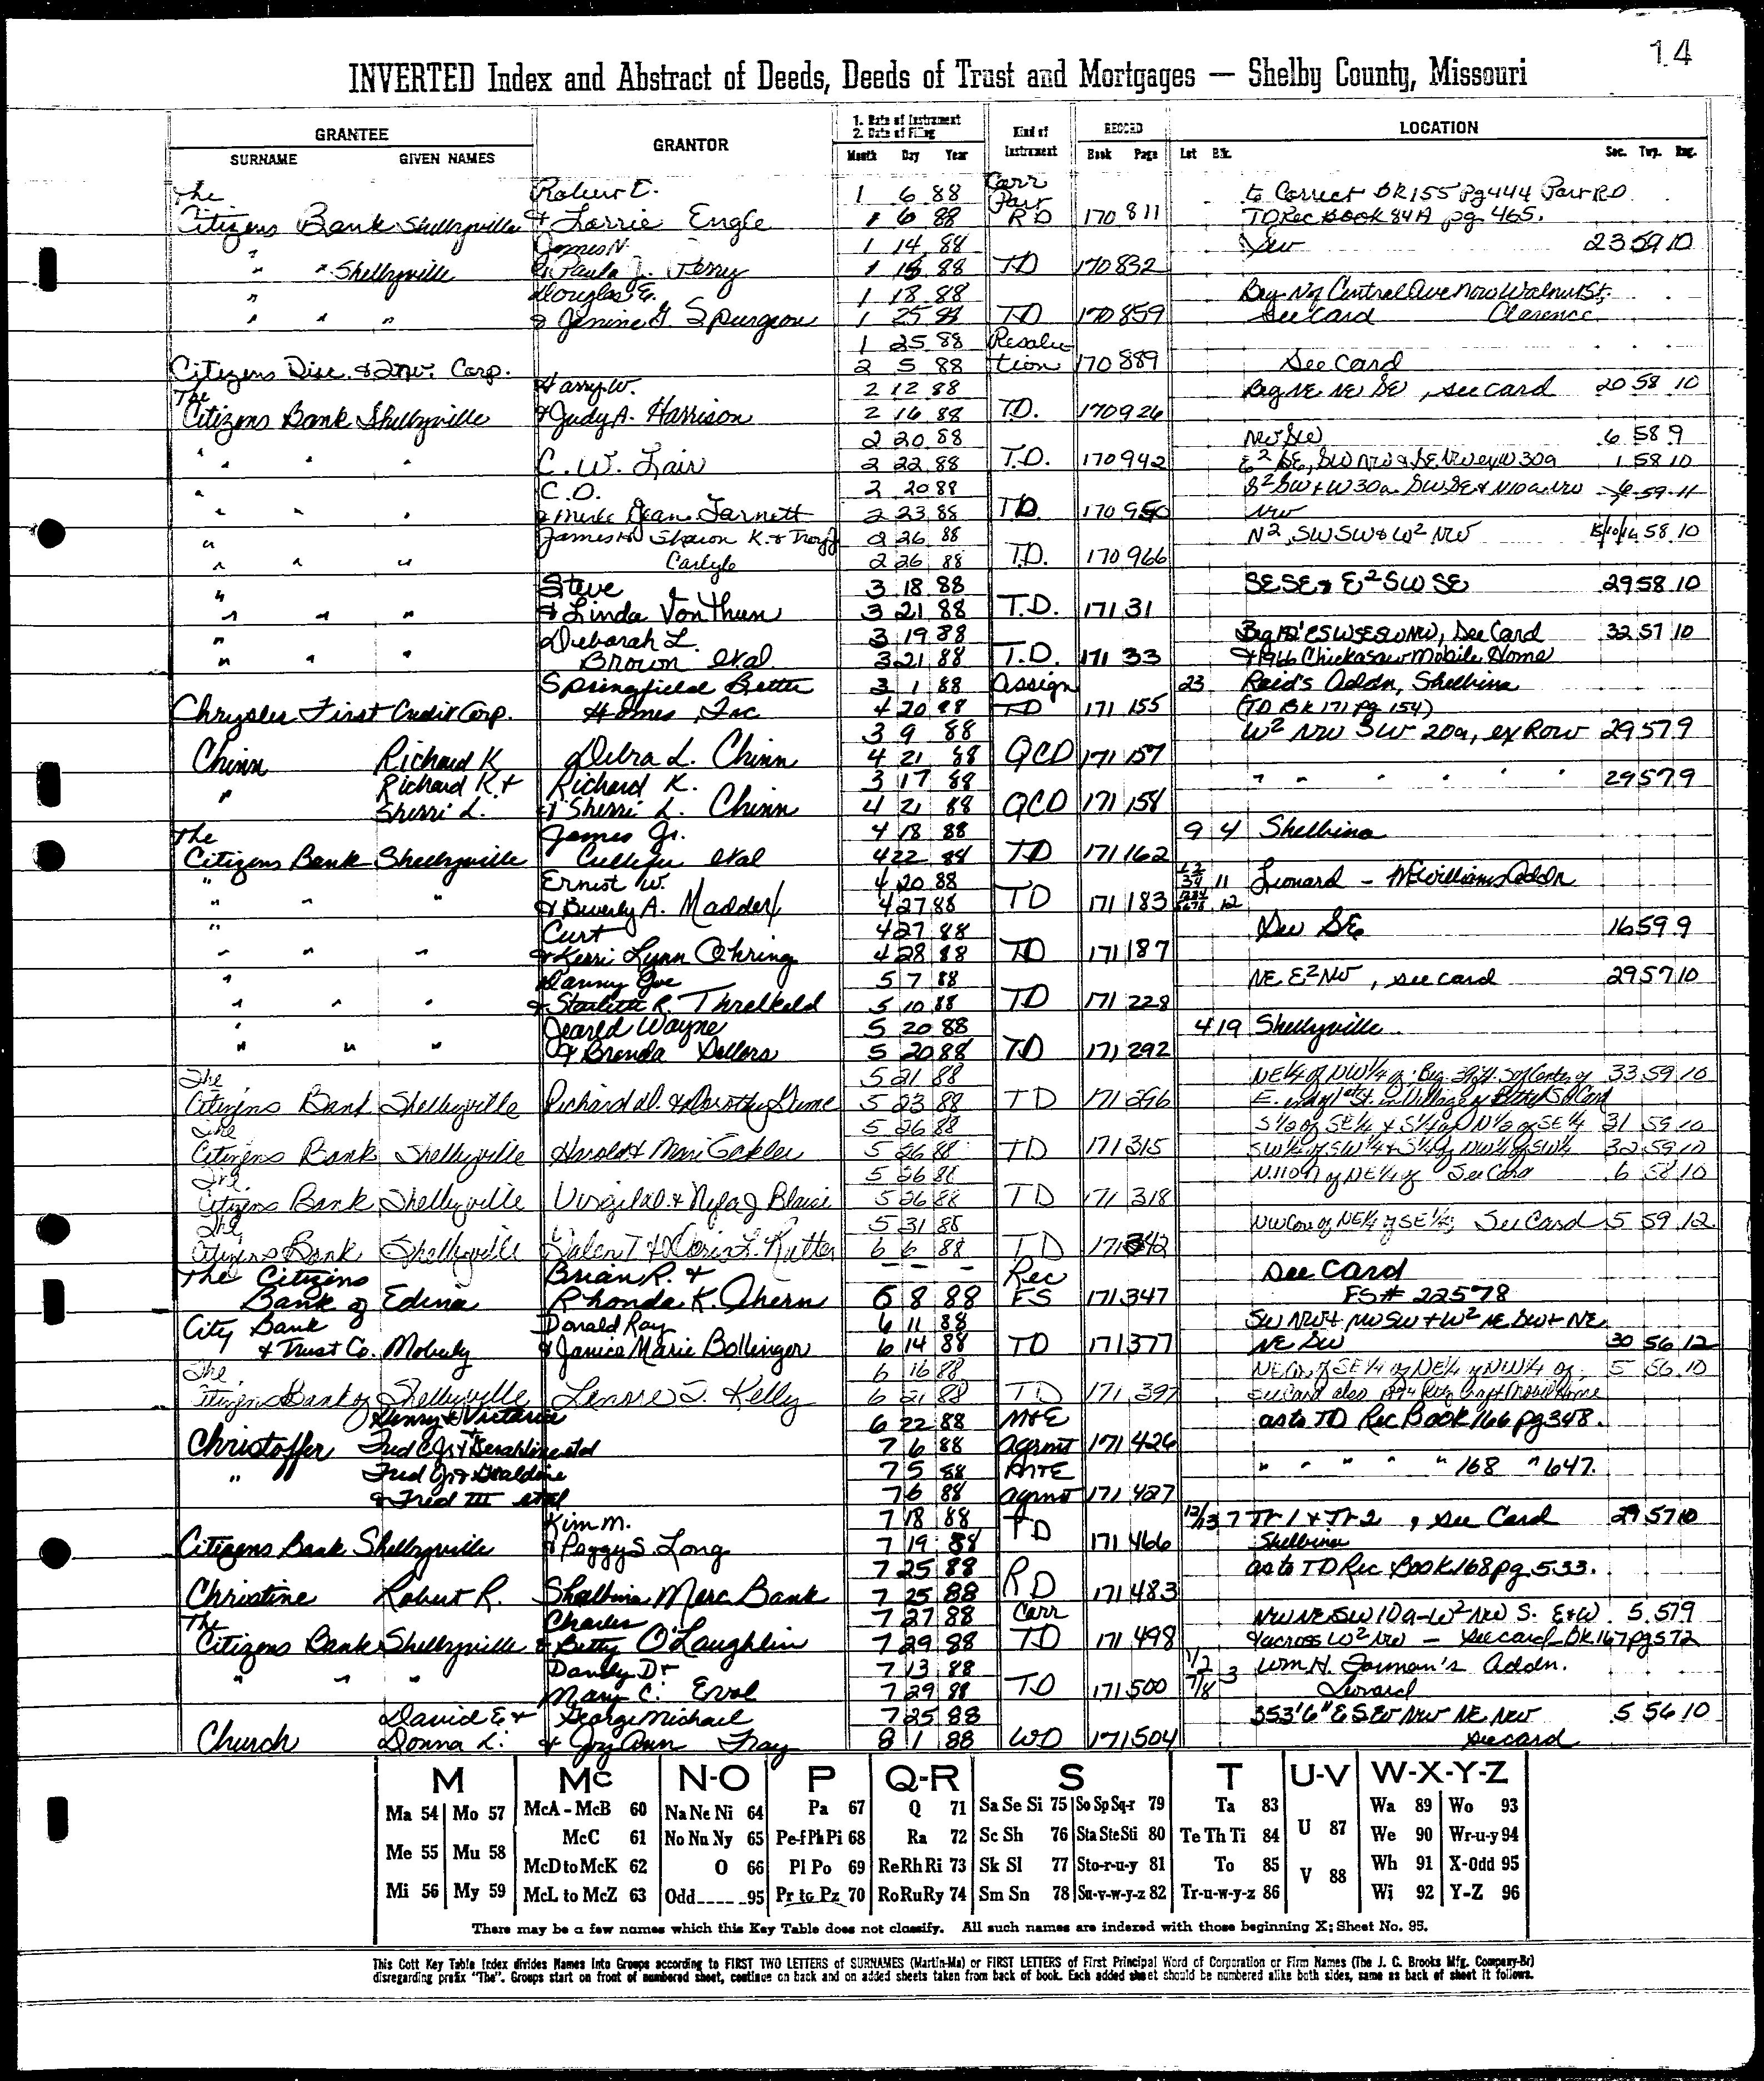 14
INVERTED Index and Abstract of Deeds, Deeds of Trust and Mortgages — Shelby County, Missouri
GRANTEE GRANTOR 1. Date of Instrument 2. Date of Filing Kind of Instrument RECORD LOCATION
SURNAME GIVEN NAMES Month Day Year Book Page Lot Blk. Sec. Twp. Rng.
The Robert E. 1 6 88 Corr Part to Correct BK 155 pg 444 Part RD
Citizens Bank Shelbyville & Lorrie Engle 1 6 88 RD 170 811 TD Rec Book 84A pg 465.
" James N. 1 14 88 23 59 10
" " Shelbyville & Paula J. Perry 1 88 TD 170 832
" Douglas E. 1 18 88 Beg N of Central Ave now Walnut St,
" " " & Jenine G Spurgeon 1 25 88 TD 170 859 See Card Clarence
1 25 88 Resolu-
Citizens Disc. & Inv. Corp. 2 5 88 tion 170 889 See Card
The Harry W. 2 12 88 Beg NE NE SE, see card 20 58 10
Citizens Bank Shelbyville & Judy A. Harrison 2 16 88 T.D. 170 926
" 2 20 88 6 58 9
" " " C. W. Lair 2 22 88 T.D. 170 942 E² SE, SW NW & SE NW ex W 30a 1 58 10
" C.O. 2 20 88 S² SW & W 30a SW SE & N 10 a NW 59 11
" " " & Merle Jean Garnett 2 23 88 TD 170 950 NW
" James H. Sharon K. & Troy J 2 26 88 N², SW SW & W² NW 58 10
" " " Carlyle 2 26 88 T.D. 170 966
" Steve 3 18 88 SE SE & E² SW SE 29 58 10
" " " & Linda Von Thun 3 21 88 T.D. 171 31
" Deborah L. 3 19 88 SW SE SW NW, See Card 32 57 10
" " " Brown etal 3 21 88 T.D. 171 33 & 1966 Chickasaw Mobile Home
Springfield Better 3 1 88 Assign 23 Reid's Addn, Shelbina
Chrysler First Credit Corp. Homes, Inc 4 20 88 TD 171 155 (TD BK 171 Pg 154)
3 9 88 W² NW SW 20a, ex Row 29 57 9
Chinn Richard K Debra L. Chinn 4 21 88 QCD 171 157
" Richard K. & Richard K. 3 17 88 " " " " " " 29 57 9
Sherri L. & Sherri L. Chinn 4 21 88 QCD 171 158
The James Jr. 4 18 88 9 4 Shelbina
Citizens Bank Shelbyville etal 4 22 88 TD 171 162
" Ernest W. 4 20 88 11 Leonard - McWilliams Addn
" " " & Beverly A. Madder 4 27 88 TD 171 183 12
" Curt 4 27 88 SW SE 16 59 9
" " " & Kerri Lynn Ohring 4 28 88 TD 171 187
" Danny Joe 5 7 88 NE E² NW, see card 29 57 10
" " " & Starlette R. Threlkeld 5 10 88 TD 171 228
" Jeared Wayne 5 20 88 4 19 Shelbyville
" " " & Brenda Sellers 5 20 88 TD 171 292
The 5 21 88 NE¼ of NW¼ of; Beg S of Center of 33 59 10
Citizens Bank Shelbyville Richard D. & Dorothy Gume 5 23 88 TD 171 296 E. end of 1st St. in Village of See Card
The 5 26 88 S½ of SE¼ & S¼ of N½ of SE¼ 31 59 10
Citizens Bank Shelbyville Harold & Mari Eckler 5 26 88 TD 171 315 SW¼ of SW¼ & S¼ of NW¼ of SW¼ 32 59 10
The 5 26 88 of NE¼ of See Card 6 58 10
Citizens Bank Shelbyville Virgil D. & Nyla J Blaise 5 26 88 TD 171 318
The 5 31 88 NW Cor of NE¼ of SE¼; See Card 5 59 12
Citizens Bank Shelbyville Galen T & Doris L. Rutter 6 6 88 TD 171 342
The Citizens Brian R. & - - - Rec See Card
Bank of Edina Rhonda K. Ahern 6 8 88 FS 171 347 FS# 22578
City Bank Donald Ray 6 11 88 SW NW & NW SW & W² NE SW & NE
& Trust Co. Moberly & Janice Marie Bollinger 6 14 88 TD 171 377 NE SW 30 56 12
The 6 16 88 NE Cor of SE¼ of NE¼ of NW¼ of; 5 56 10
Citizens Bank of Shelbyville Lenore I. Kelly 6 21 88 TD 171 397 See Card also 1974
Henry & Victoria 6 22 88 M&E as to TD Rec Book 166 pg 348.
Christoffer Fred C Jr & Geraldine etal 7 6 88 agrmt 171 426
" Fred Jr & Geraldine 7 5 88 " " " " " 168 " 647.
& Fred III etal 7 6 88 agrmt 171 427
Kim M. 7 18 88 TD 12/13 7 Tr 1 & Tr 2, see Card 29 57 10
Citizens Bank Shelbyville & Peggy S. Long 7 19 88 171 466 Shelbina
7 25 88 RD as to TD Rec Book 168 pg 533.
Christine Robert R. Shelbina Merc Bank 7 25 88 171 483
The Charles 7 27 88 Corr NW NE SW 10a - W² NW S. E & W 5 57 9
Citizens Bank Shelbyville & Betty O'Laughlin 7 29 88 TD 171 498 & across W² NW - See card - BK 167 pg 572
Dandy D & 7 13 88 1/2 Wm H. Forman's Addn.
" " " Mary C. Ervol 7 29 88 TD 171 500 7/8 3 Leonard
David E & George Michael 7 25 88 353'6" E SW NW NE NW 5 56 10
Church Donna L. & Joy Ann Fray 8 1 88 WD 171 504 see card
M Mc N-O P Q-R S T U-V W-X-Y-Z
Ma 54 Mo 57 McA - McB 60 Na Ne Ni 64 Pa 67 Q 71 Sa Se Si 75 So Sp Sq-r 79 Ta 83 U 87 Wa 89 Wo 93
Me 55 Mu 58 McC 61 No Nu Ny 65 Pe-f Ph Pi 68 Ra 72 Sc Sh 76 Sta Ste Sti 80 Te Th Ti 84 We 90 Wr-u-y 94
McD to McK 62 O 66 Pl Po 69 Re Rh Ri 73 Sk Sl 77 Sto-r-u-y 81 To 85 V 88 Wh 91 X-Odd 95
Mi 56 My 59 McL to McZ 63 Odd 95 Pr to Pz 70 Ro Ru Ry 74 Sm Sn 78 Su-v-w-y-z 82 Tr-u-w-y-z 86 Wi 92 Y-Z 96
There may be a few names which this Key Table does not classify. All such names are indexed with those beginning X; Sheet No. 95.
This Cott Key Table Index divides Names Into Groups according to FIRST TWO LETTERS of SURNAMES (Martin-Ma) or FIRST LETTERS of First Principal Word of Corporation or Firm Names (The J. C. Brooks Mfg. Company-Br)
disregarding prefix "The". Groups start on front of numbered sheet, continue on back and on added sheets taken from back of book. Each added sheet should be numbered alike both sides, same as back of sheet it follows.